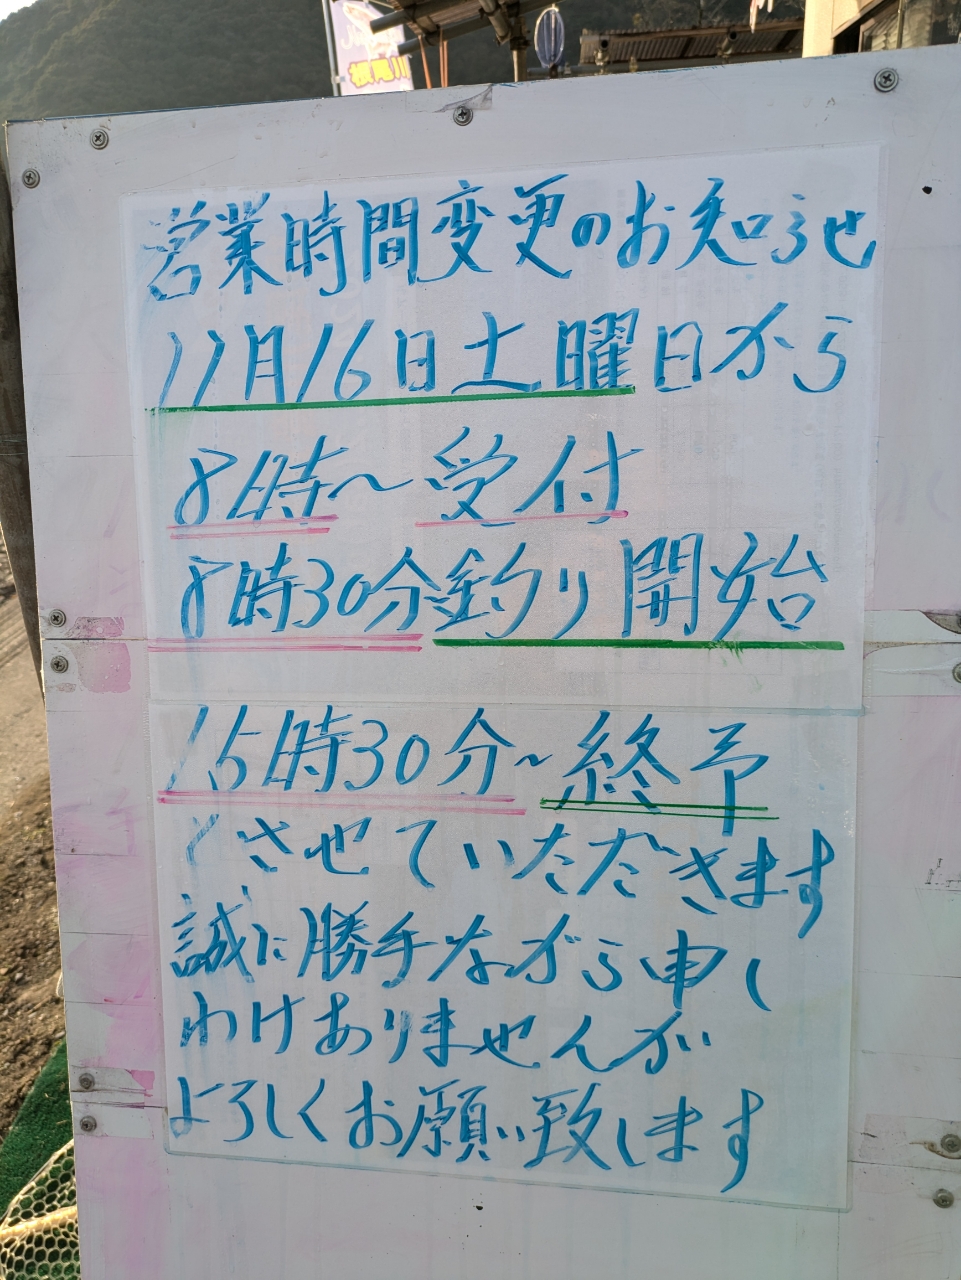 根尾川
営業時間変更のお知らせ
11月16日土曜日から
8時～受付
8時30分釣り開始
15時30分～終予
とさせていただきます
誠に勝手ながら申し
わけありませんが
よろしくお願い致します